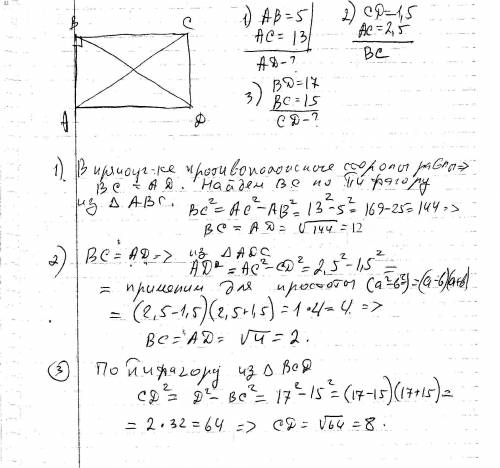 B C
A D
1) AB = 5
AC = 13
AD - ?
2) CD = 1,5
AC = 2,5
BC
3) BD = 17
BC = 15
CD - ?
1) В прямоуг-ке противоположные стороны равны =>
BC = AD. Найдем BC по Пифагору
из △ABC. BC² = AC² - AB² = 13² - 5² = 169 - 25 = 144 =>
BC = AD = √144 = 12
2) BC = AD => из △ADC
AD² = AC² - CD² = 2,5² - 1,5² =
= применим для простоты (a² - b²) = (a-b)(a+b)
= (2,5 - 1,5)(2,5 + 1,5) = 1 · 4 = 4. =>
BC = AD = √4 = 2.
3) По Пифагору из △BCD
CD² = D² - BC² = 17² - 15² = (17-15)(17+15) =
= 2 · 32 = 64 => CD = √64 = 8.